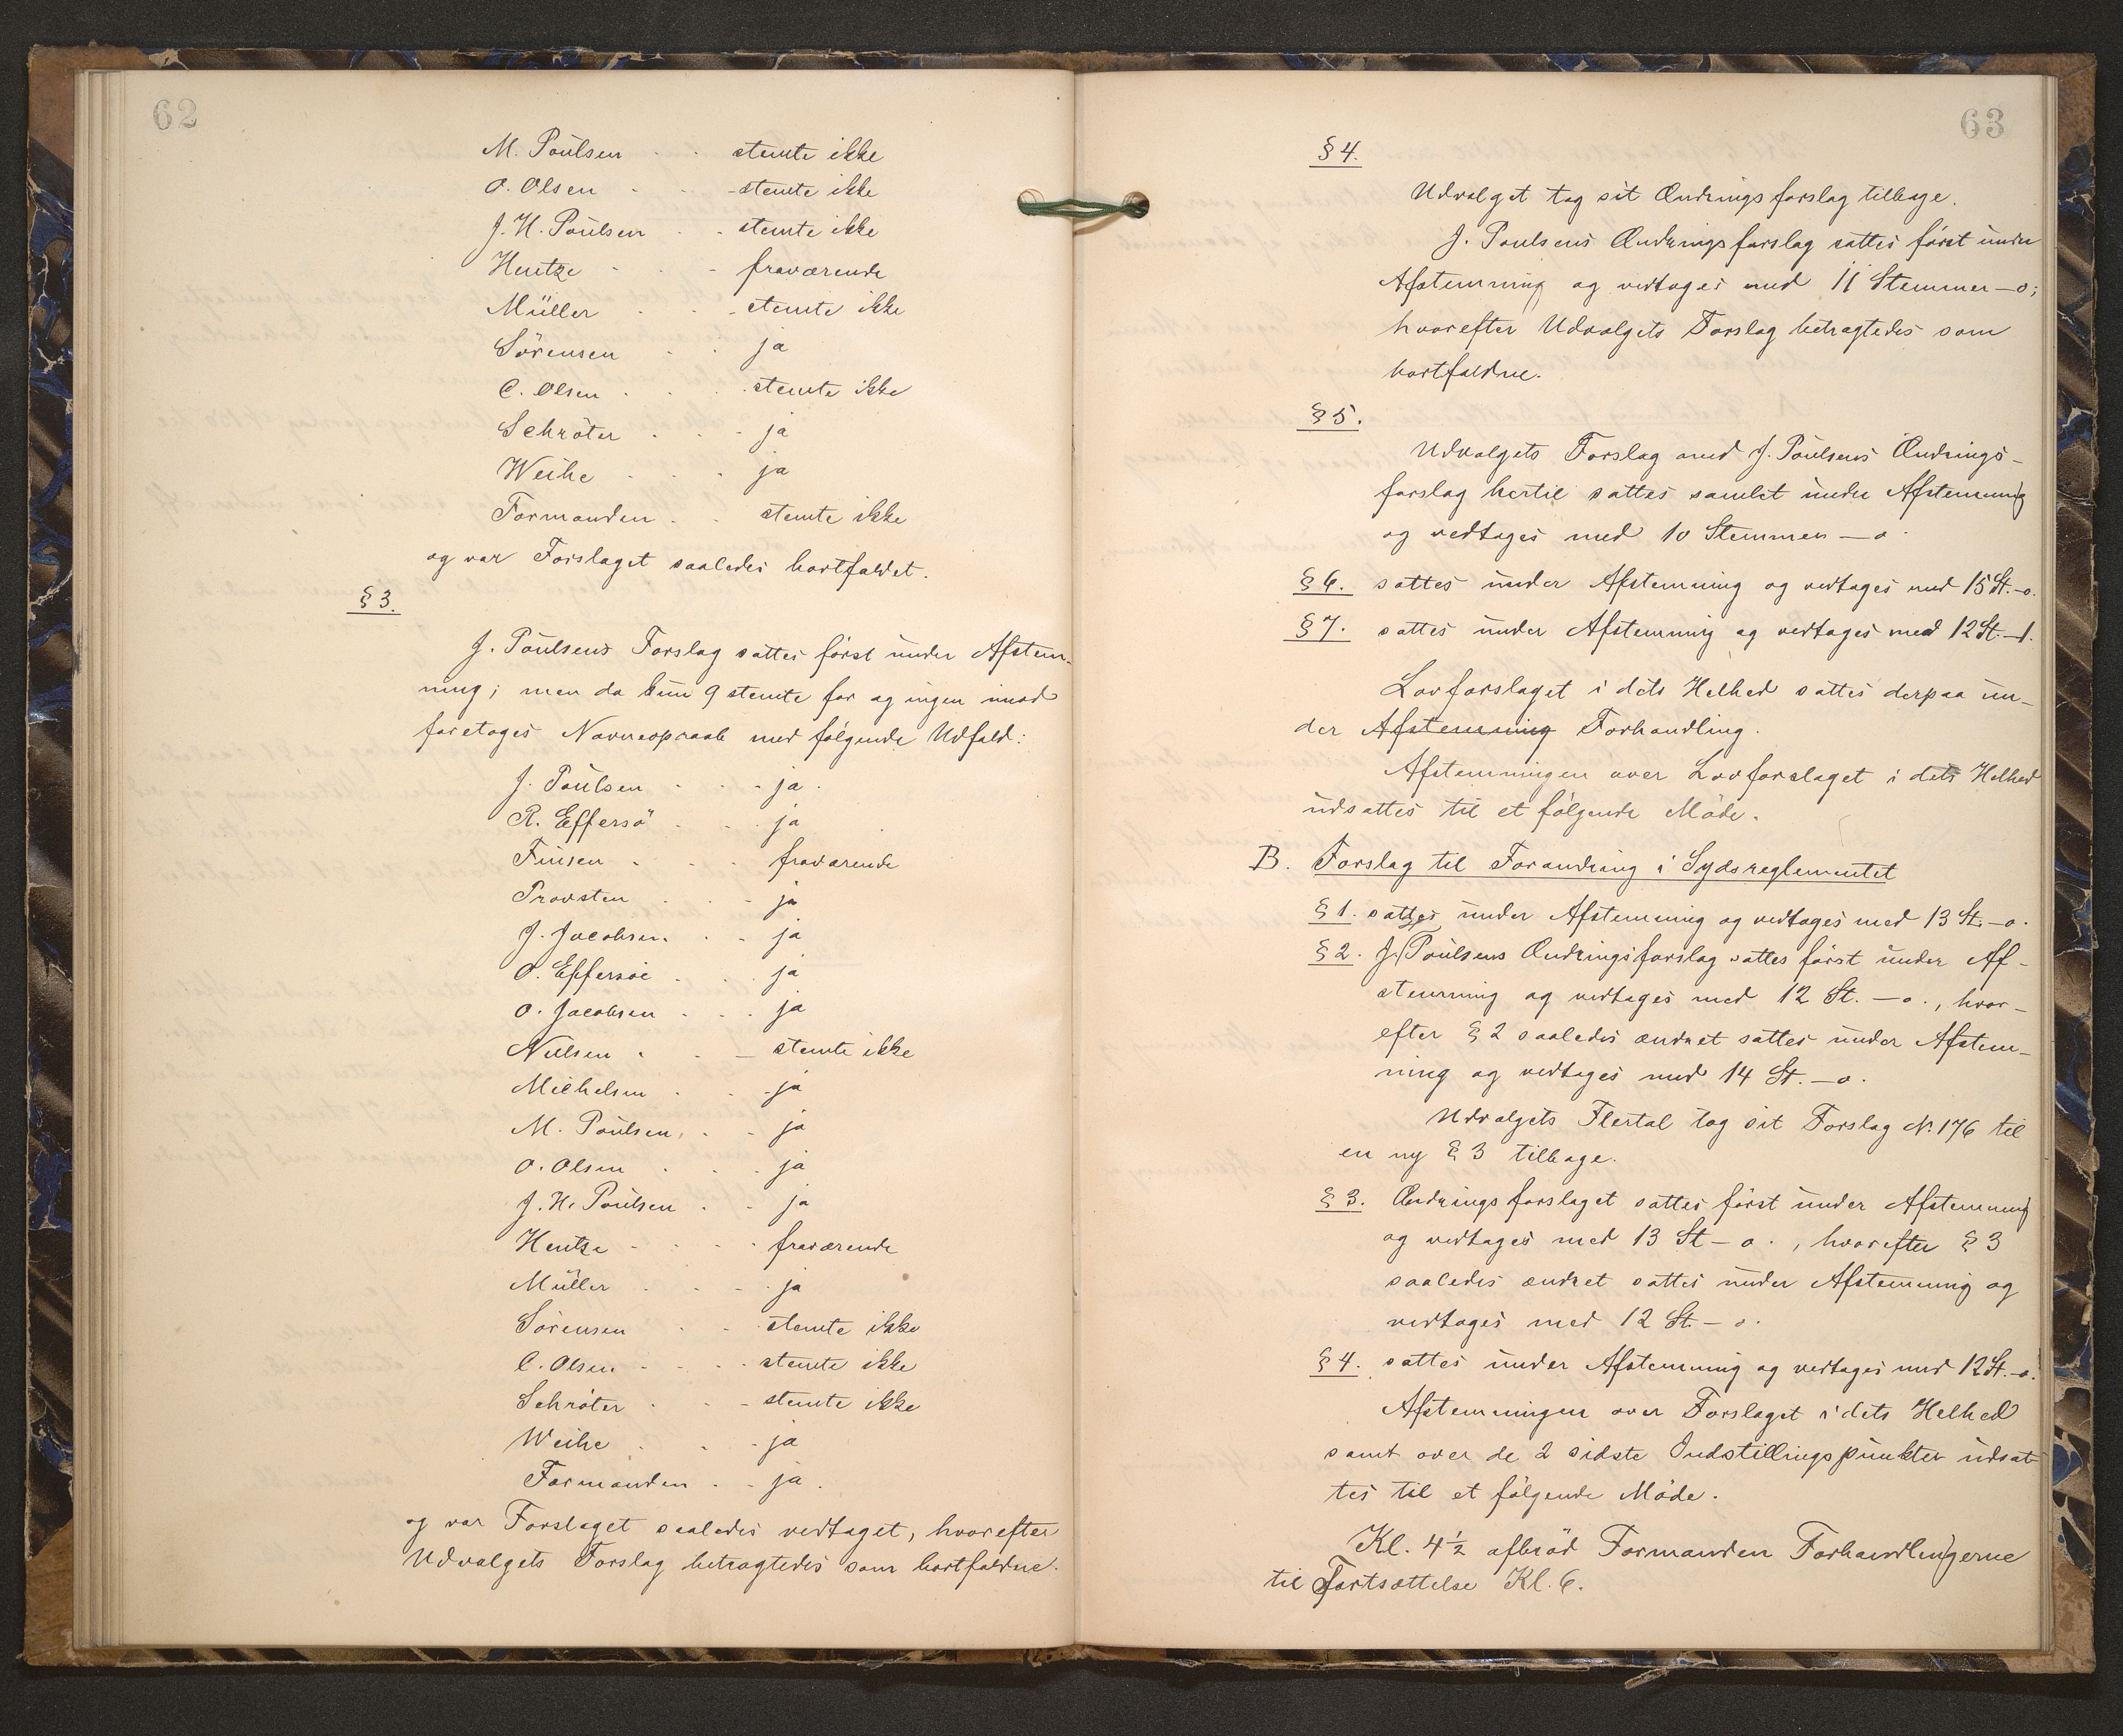 62
M. Poulsen - - stemte ikke
O. Olsen - - stemte ikke
J. H. Poulsen - - stemte ikke
Hentze - - - fraværende
Müller - - stemte ikke
Sörensen - - ja
C. Olsen - - - stemte ikke
Schröter - - - ja
Weihe - - - ja
Formanden - - stemte ikke
og var Forslaget saaledes bortfaldet.
§ 3.
J. Poulsens Forslag sattes först under Afstem-
ning; men da kun 9 stemte for og ingen imod
foretoges Navneopraab med fölgende Udfald:
J. Poulsen - - - ja.
R. Effersö - - - ja
Finsen - - - fraværende
Provsten - - - ja
J. Jacobsen - - ja
O. Effersöe - - - ja
O. Jacobsen - - - ja
Nielsen - - - stemte ikke
Michelsen - - - ja
M. Poulsen - - ja
O. Olsen - - - ja
J. H. Poulsen - - ja
Hentze - - - - fraværende
Müller - - - ja
Sörensen - - stemte ikke
C. Olsen - - - stemte ikke
Schröter - - - stemte ikke
Weihe - - - ja
Formanden - - ja.
og var Forslaget saaledes vedtaget, hvorefter
Udvalgets Forslag betragtedes som bortfaldne.
63
§ 4.
Udvalget tog sit Ændringsforslag tilbage.
J. Poulsens Ændringsforslag sattes först under
Afstemning og vedtoges med 11 Stemmer – 0;
hvorefter Udvalgets Forslag betragtedes som
bortfaldne.
§ 5.
Udvalgets Forslag med J. Poulsens Ændrings-
forslag hertil sattes samlet under Afstemning
og vedtoges med 10 Stemmer – 0.
§ 6. sattes under Afstemning og vedtoges med 15 St. – 0.
§ 7. sattes under Afstemning og vedtoges med 12 St. – 1.
Lovforslaget i dets Helhed sattes derpaa un-
der Afstemning Forhandling.
Afstemningen over Lovforslaget i dets Helhed
udsattes til et fölgende Möde.
B. Forslag til Forandring i Sydsreglementet
§ 1. sattes under Afstemning og vedtoges med 13 St. – 0.
§ 2. J. Poulsens Ændringsforslag sattes först under Af-
stemning og vedtoges med 12 St. – 0., hvor-
efter § 2 saaledes ændret sattes under Afstem-
ning og vedtoges med 14 St. – 0.
Udvalgets Flertal tog sit Forslag N. 176 til
en ny § 3 tilbage.
§ 3. Ændringsforslaget sattes först under Afstemning
og vedtoges med 13 St – 0., hvorefter § 3
saaledes ændret sattes under Afstemning og
vedtoges med 12 St. – 0.
§ 4. sattes under Afstemning og vedtoges med 12 St. – 0.
Afstemningen over Forslaget i dets Helhed
samt over de 2 sidste Indstillingspunkter udsat-
tes til et fölgende Möde.
Kl. 4½ afbröd Formanden Forhandlingerne
til Fortsættelse Kl. 6.